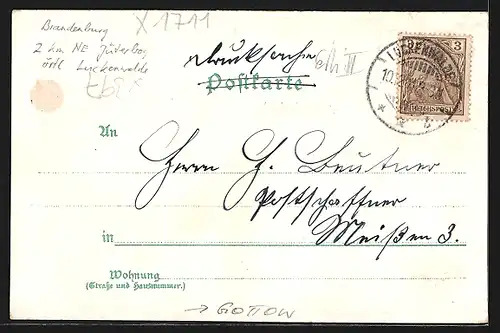 Brandenburg
2 km NE Jüterbog
örtl Luckenwalde
X 1711
Drucksache
Postkarte
LUCKENWALDE
10.
* * b
3
REICHSPOST
An
Herrn H. Beutner
Postschaffner
in Meißen 3.
Wohnung
(Straße und Hausnummer.)
→ GOTTOW